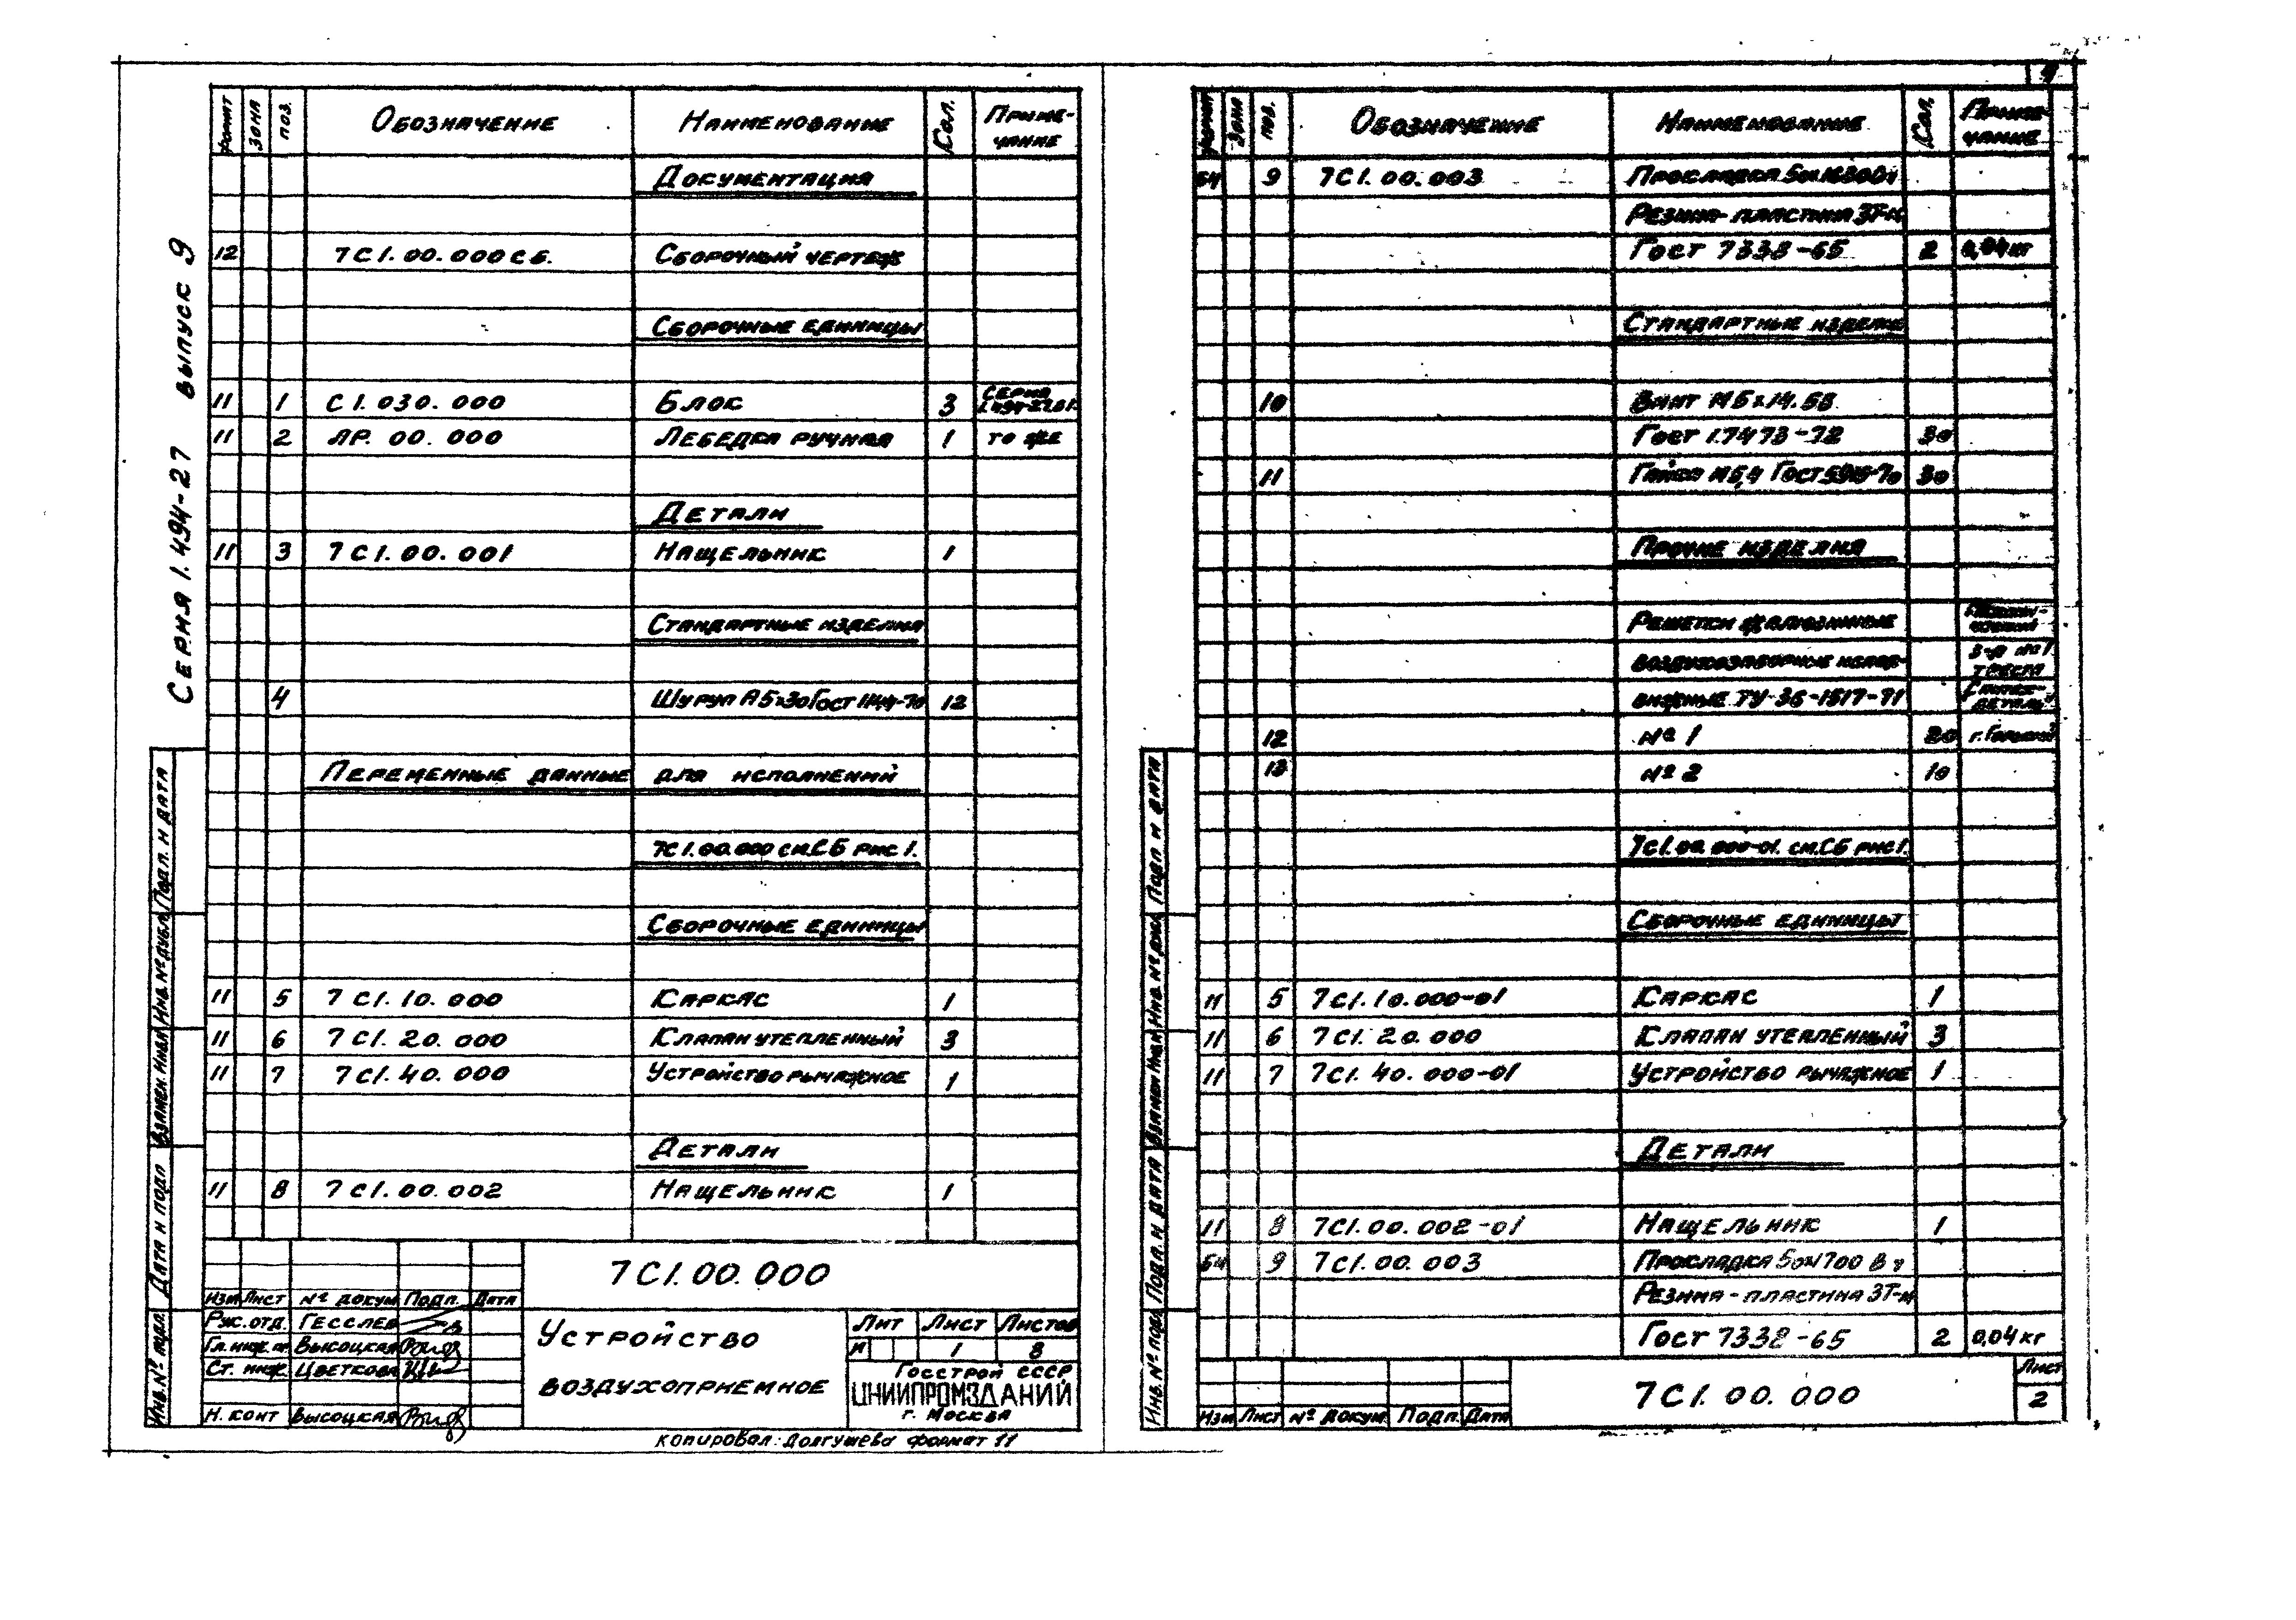 Серия 1.494-27 выпуск 9
Формат Зона Поз. Обозначение Наименование Кол. Приме-
чание
Документация
12 7С1.00.000 СБ. Сборочный чертеж
Сборочные единицы
11 1 С1.030.000 Блок 3 Серия
11 2 ЛР.00.000 Лебедка ручная 1 то же
Детали
11 3 7С1.00.001 Нащельник 1
Стандартные изделия
4 Шуруп А5х30 Гост 12
Переменные данные для исполнений
7С1.00.000 см.СБ рис 1.
Сборочные единицы
11 5 7С1.10.000 Каркас 1
11 6 7С1.20.000 Клапан утепленный 3
11 7 7С1.40.000 Устройство рычажное 1
Детали
11 8 7С1.00.002 Нащельник 1
Подл. и дата
Инв. № дубл.
Взамен. Инв.№
Дата и подл
Инв. № подл.
7С1.00.000
Изм Лист № докум Подп. Дата
Рук. отд. Гесслер
Гл. инж. Высоцкая
Ст. инж. Цветкова
Н. конт Высоцкая
Устройство
воздухоприемное
Лит Лист Листов
И 1 8
Госстрой СССР
ЦНИИПРОМЗДАНИЙ
г. Москва
копировал: Долгушева формат 11
9
Формат Зона Поз. Обозначение Наименование Кол. Приме-
чание
БЧ 9 7С1.00.003 Прокладка
Резина-пластина 3Т-м
Гост 7338-65 2 0,04 кг
Стандартные изделия
10 Винт М5х14.58
Гост 17473-72 30
11 Гайка М5,4 Гост 5916-70 30
Прочие изделия
Решетки жалюзийные
воздухозаборные непод-
вижные ТУ-36-1517-71
з-д №1
треста
деталь"
12 №1 20 г. Горький
13 №2 10
7С1.00.000-01. см.СБ рис 1.
Сборочные единицы
11 5 7С1.10.000-01 Каркас 1
11 6 7С1.20.000 Клапан утепленный 3
11 7 7С1.40.000-01 Устройство рычажное 1
Детали
11 8 7С1.00.002-01 Нащельник 1
БЧ 9 7С1.00.003 Прокладка
Резина-пластина 3Т-м
Гост 7338-65 2 0,04 кг
Подп и дата
Инв. № дубл
Взамен Инв.№
Подп. и дата
Инв. № подл
Изм Лист № докум. Подп. Дата
7С1.00.000
Лист
2